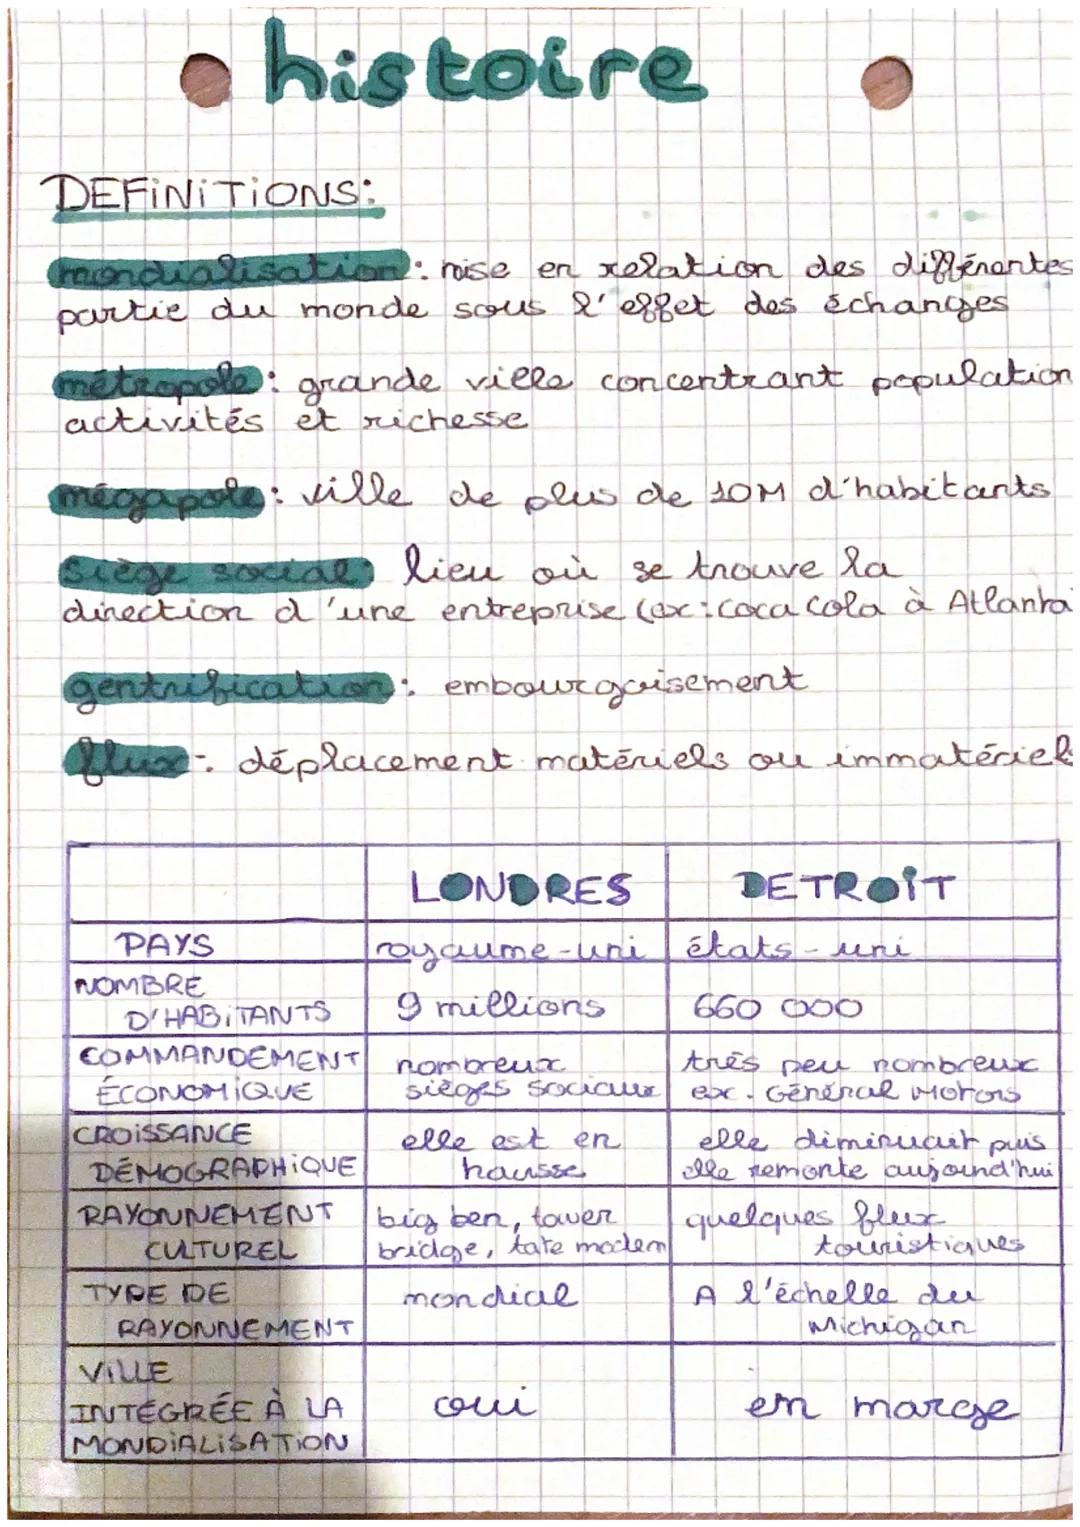 histoire
DEFINITIONS:
mondialisation : mise en relation des différentes
partie du monde sous l'effet des échanges
métropole : grande ville concentrant population
activités et richesse
mégapole : ville de plus de 10M d'habitants
siège social : lieu où se trouve la
direction d'une entreprise (ex : coca cola à Atlanta
gentrification : embourgoisement
flux : déplacement matériels ou immatériels
LONDRES DETROIT
PAYS royaume-uni états-uni
NOMBRE
D'HABITANTS 9 millions 660 000
COMMANDEMENT nombreux très peu nombreux
ÉCONOMIQUE sièges sociaux ex. Général Motors
CROISSANCE elle est en elle diminuait puis
DÉMOGRAPHIQUE hausse elle remonte aujourd'hui
RAYONNEMENT big ben, tower quelques flux
CULTUREL bridge, tate modern touristiques
TYPE DE mondial A l'échelle du
RAYONNEMENT Michigan
VILLE
INTÉGRÉE À LA oui en marge
MONDIALISATION